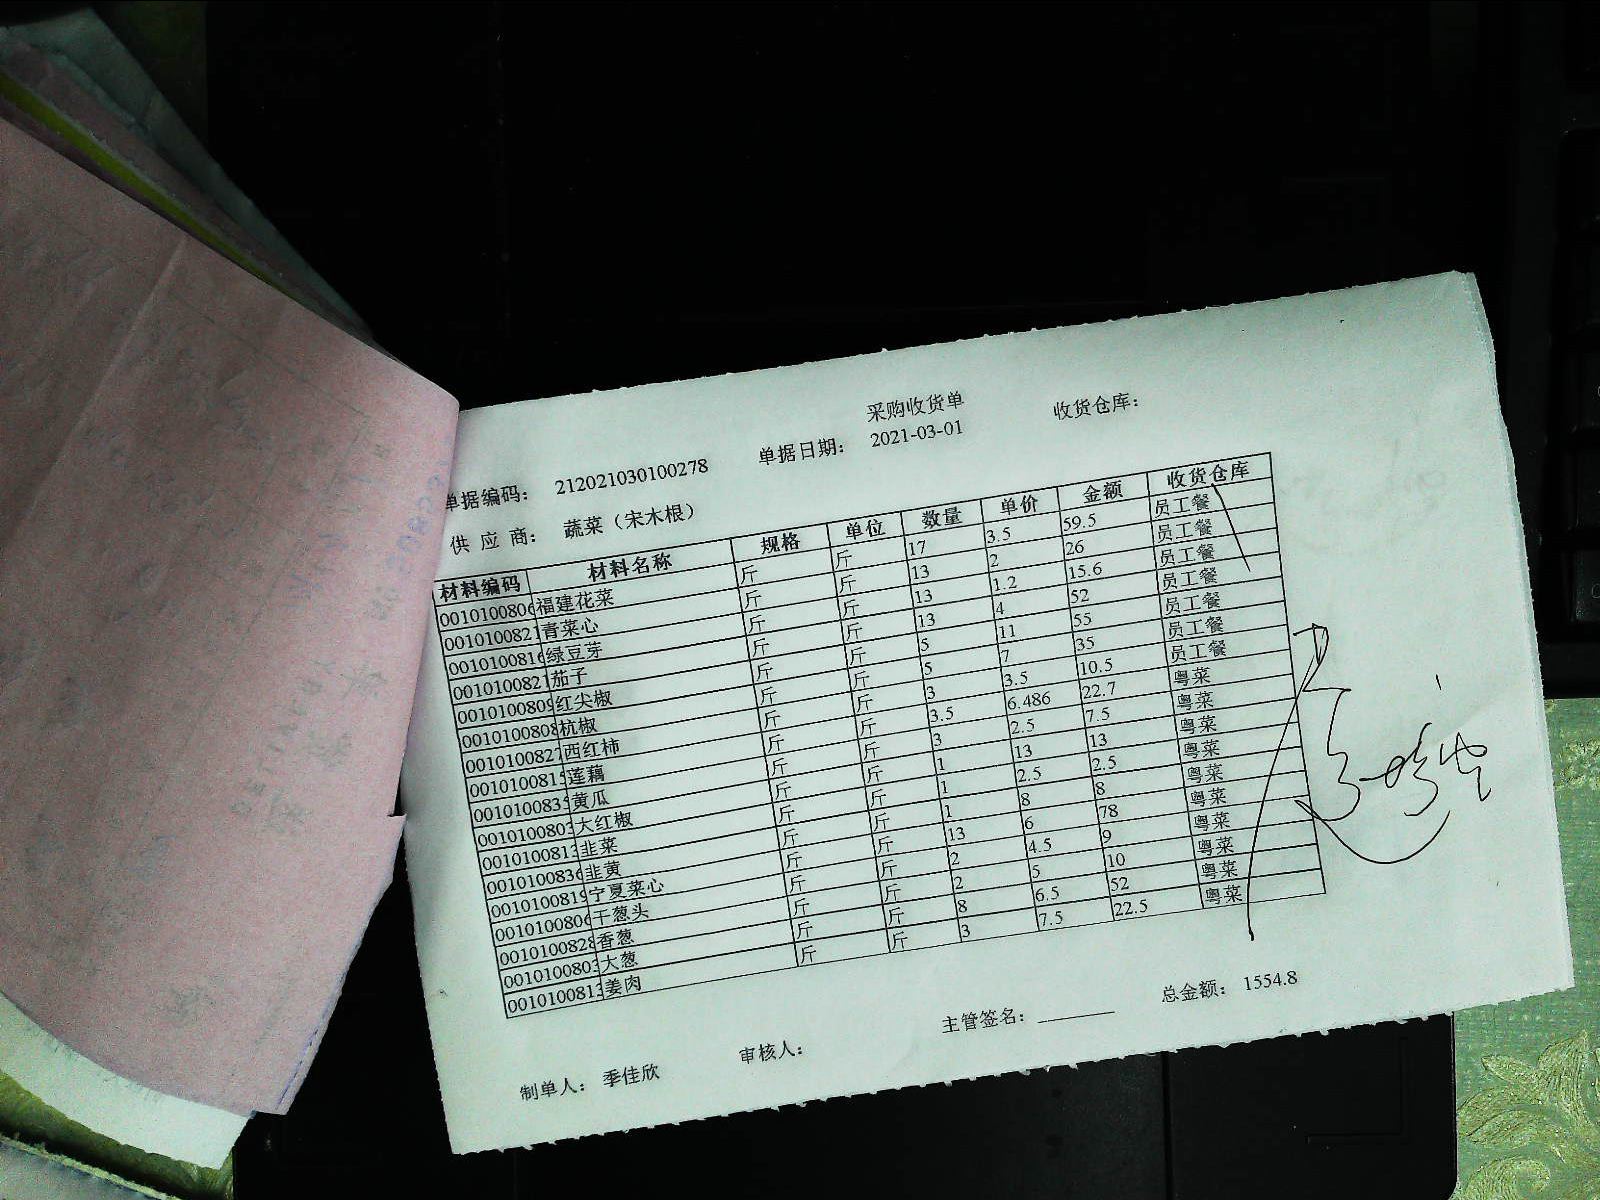 采购收货单
单据编码： 212021030100278 单据日期： 2021-03-01 收货仓库：
供 应 商： 蔬菜（宋木根）
材料编码 材料名称 规格 单位 数量 单价 金额 收货仓库
0010100806 福建花菜 斤 斤 17 3.5 59.5 员工餐
0010100821 青菜心 斤 斤 13 2 26 员工餐
0010100816 绿豆芽 斤 斤 13 1.2 15.6 员工餐
0010100821 茄子 斤 斤 13 4 52 员工餐
0010100809 红尖椒 斤 斤 5 11 55 员工餐
0010100808 杭椒 斤 斤 5 7 35 员工餐
0010100827 西红柿 斤 斤 3 3.5 10.5 员工餐
0010100815 莲藕 斤 斤 3.5 6.486 22.7 粤菜
0010100835 黄瓜 斤 斤 3 2.5 7.5 粤菜
0010100803 大红椒 斤 斤 1 13 13 粤菜
0010100813 韭菜 斤 斤 1 2.5 2.5 粤菜
0010100836 韭黄 斤 斤 1 8 8 粤菜
0010100819 宁夏菜心 斤 斤 13 6 78 粤菜
0010100806 干葱头 斤 斤 2 4.5 9 粤菜
0010100828 香葱 斤 斤 2 5 10 粤菜
0010100803 大葱 斤 斤 8 6.5 52 粤菜
0010100813 姜肉 斤 斤 3 7.5 22.5 粤菜
制单人： 季佳欣 审核人： 主管签名： 总金额： 1554.8